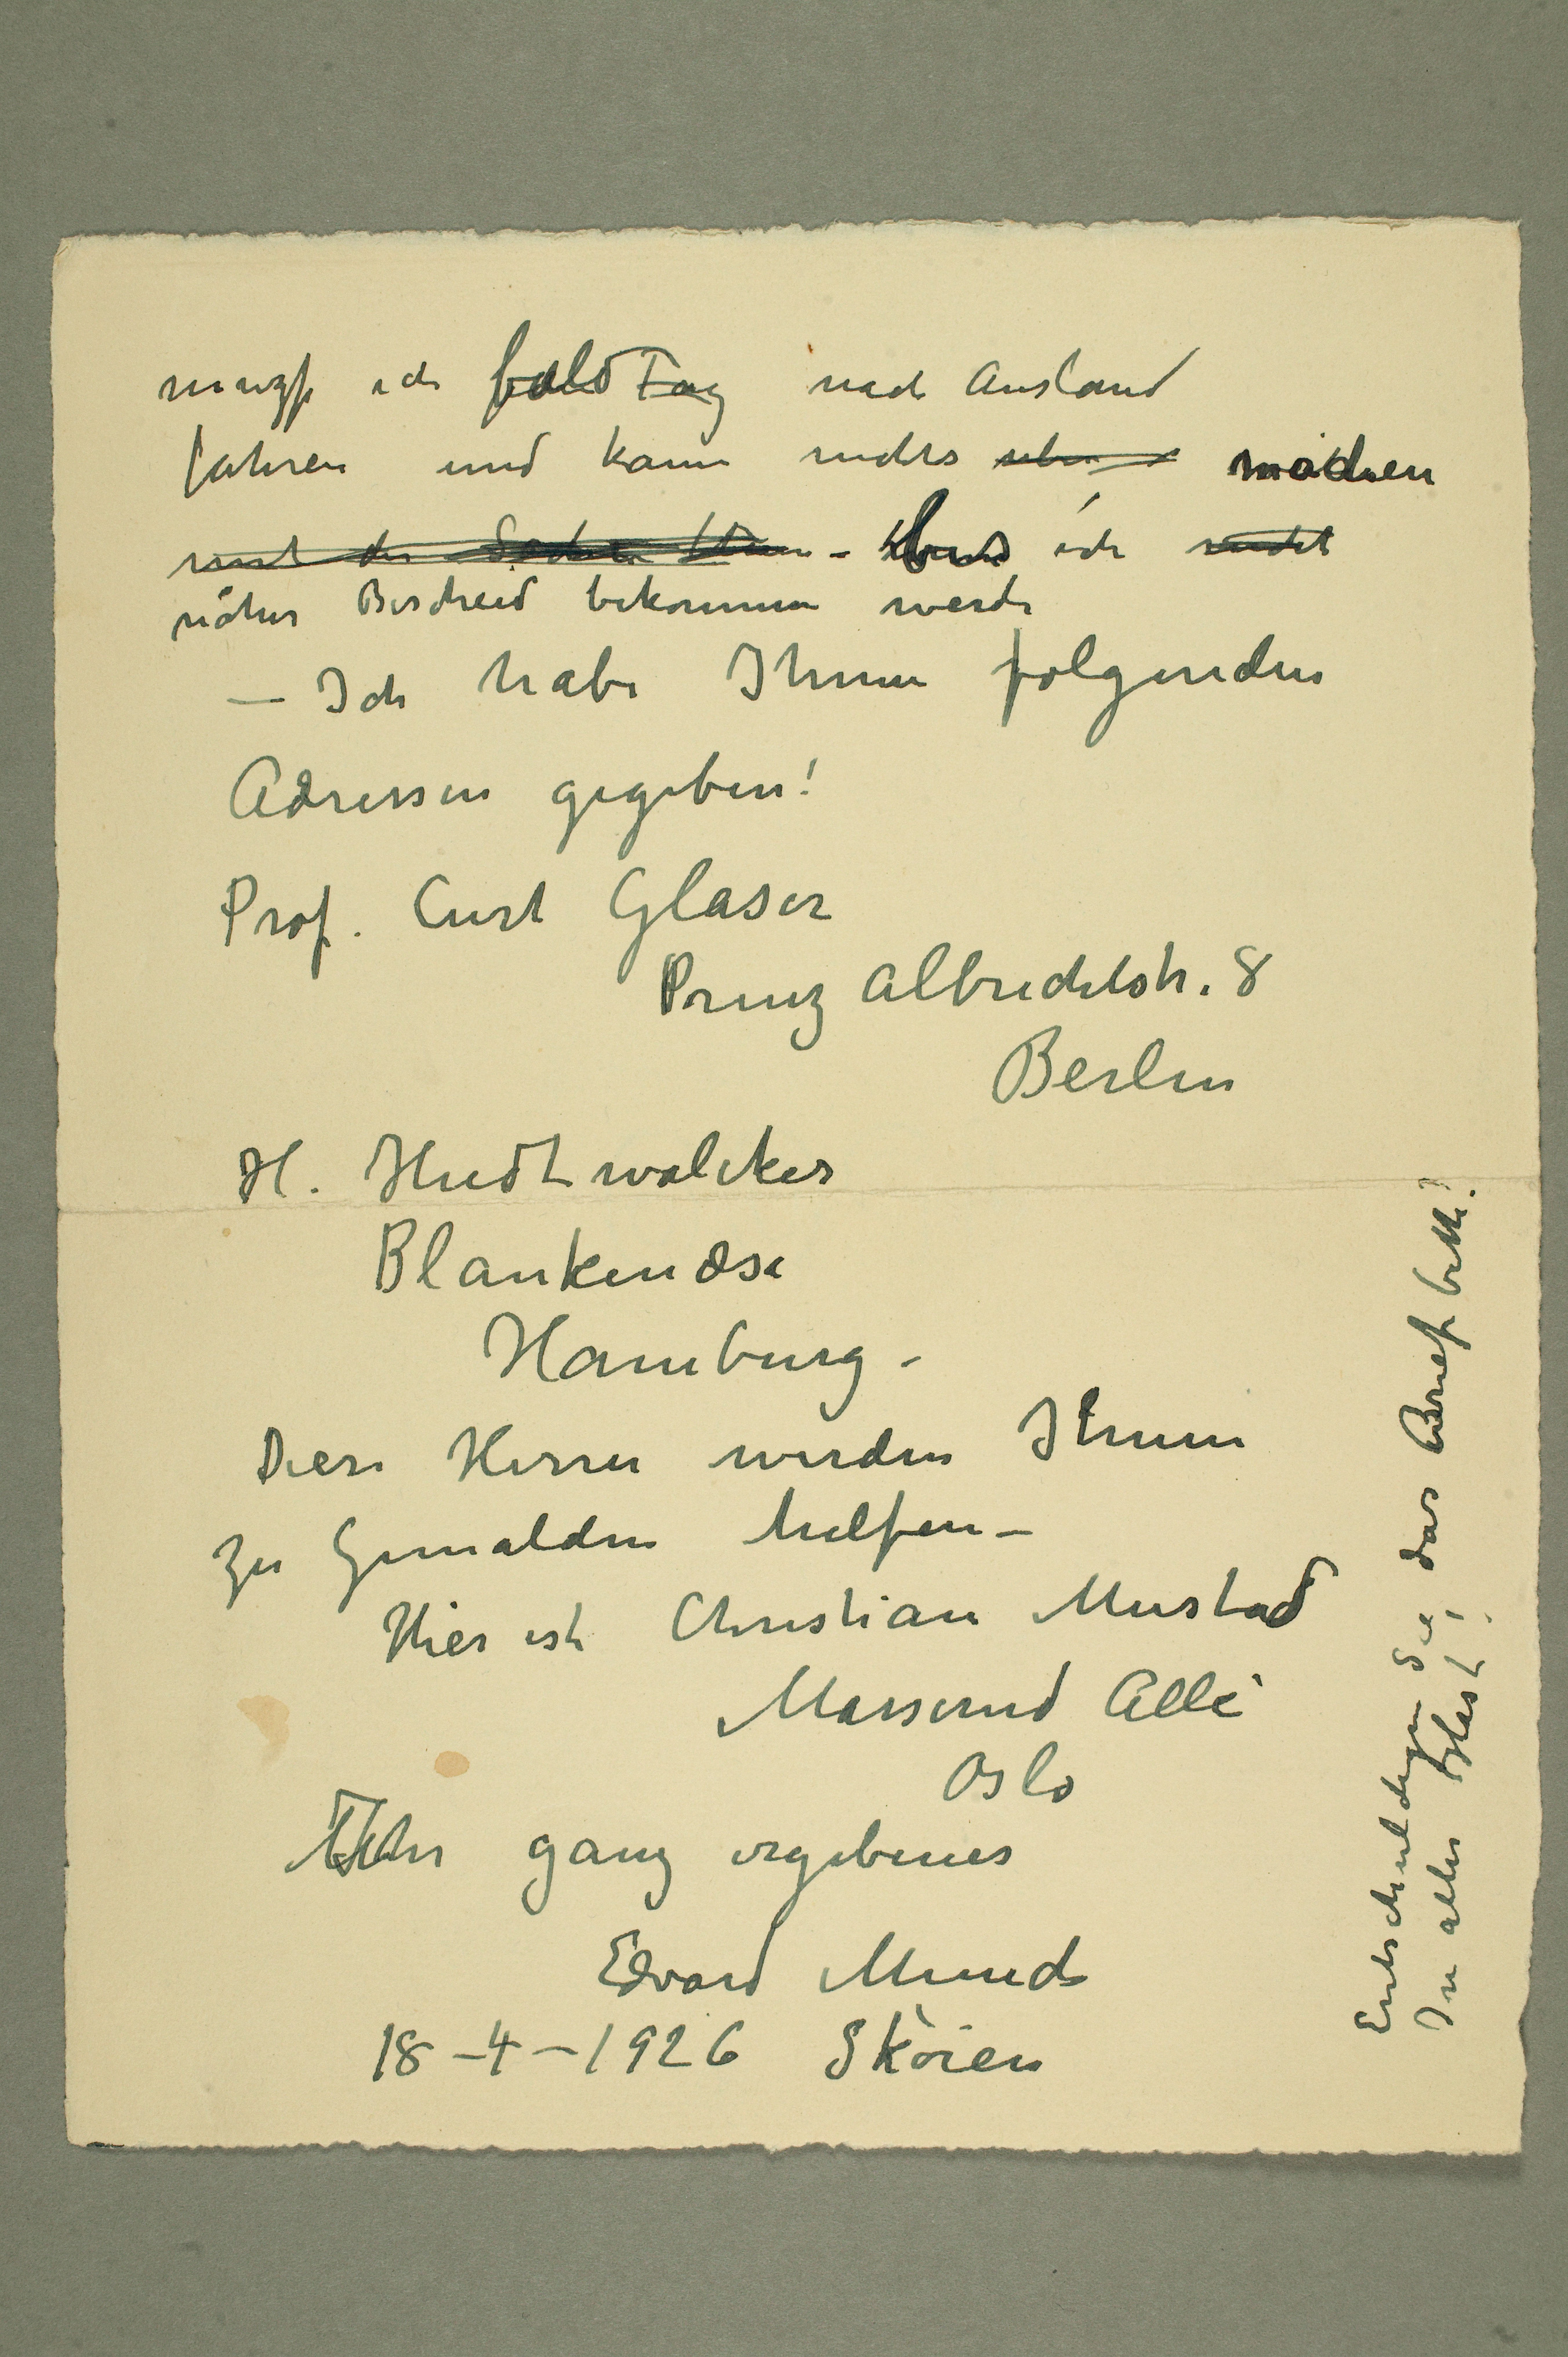 muzß ich bald Tag nach Ausland
fahren und kann nichts machen
mit der Sache thun – bis ich nicht
näher Bescheid bekommen werde
— Ich habe Ihnen folgenden
Adressen gegeben!
Prof. Curt Glaser
Prinz Albrechtstr. 8
Berlin
H. Hudtwalcker
Blankenöse
Hamburg –
Diese Herren werden Ihnen
zu Gemälden helfen –
Hier ist Christian Mustad
Masserud Allé
Oslo
Ihr ganz ergebener
Edvard Munch
18–4–1926 Sköien
Entschuldigen Sie, das Brief bitte!
In aller Hast!